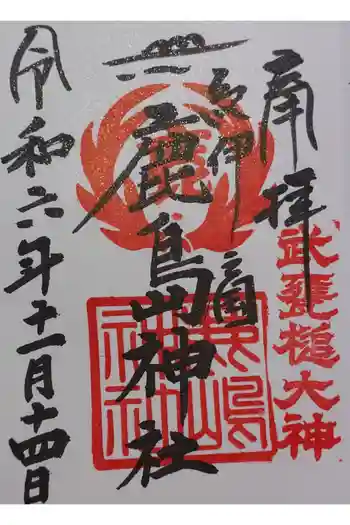 奉拝
武甕槌大神
紀伊
三国
鹿島神社
鹿嶋神社
令和六年十一月十四日